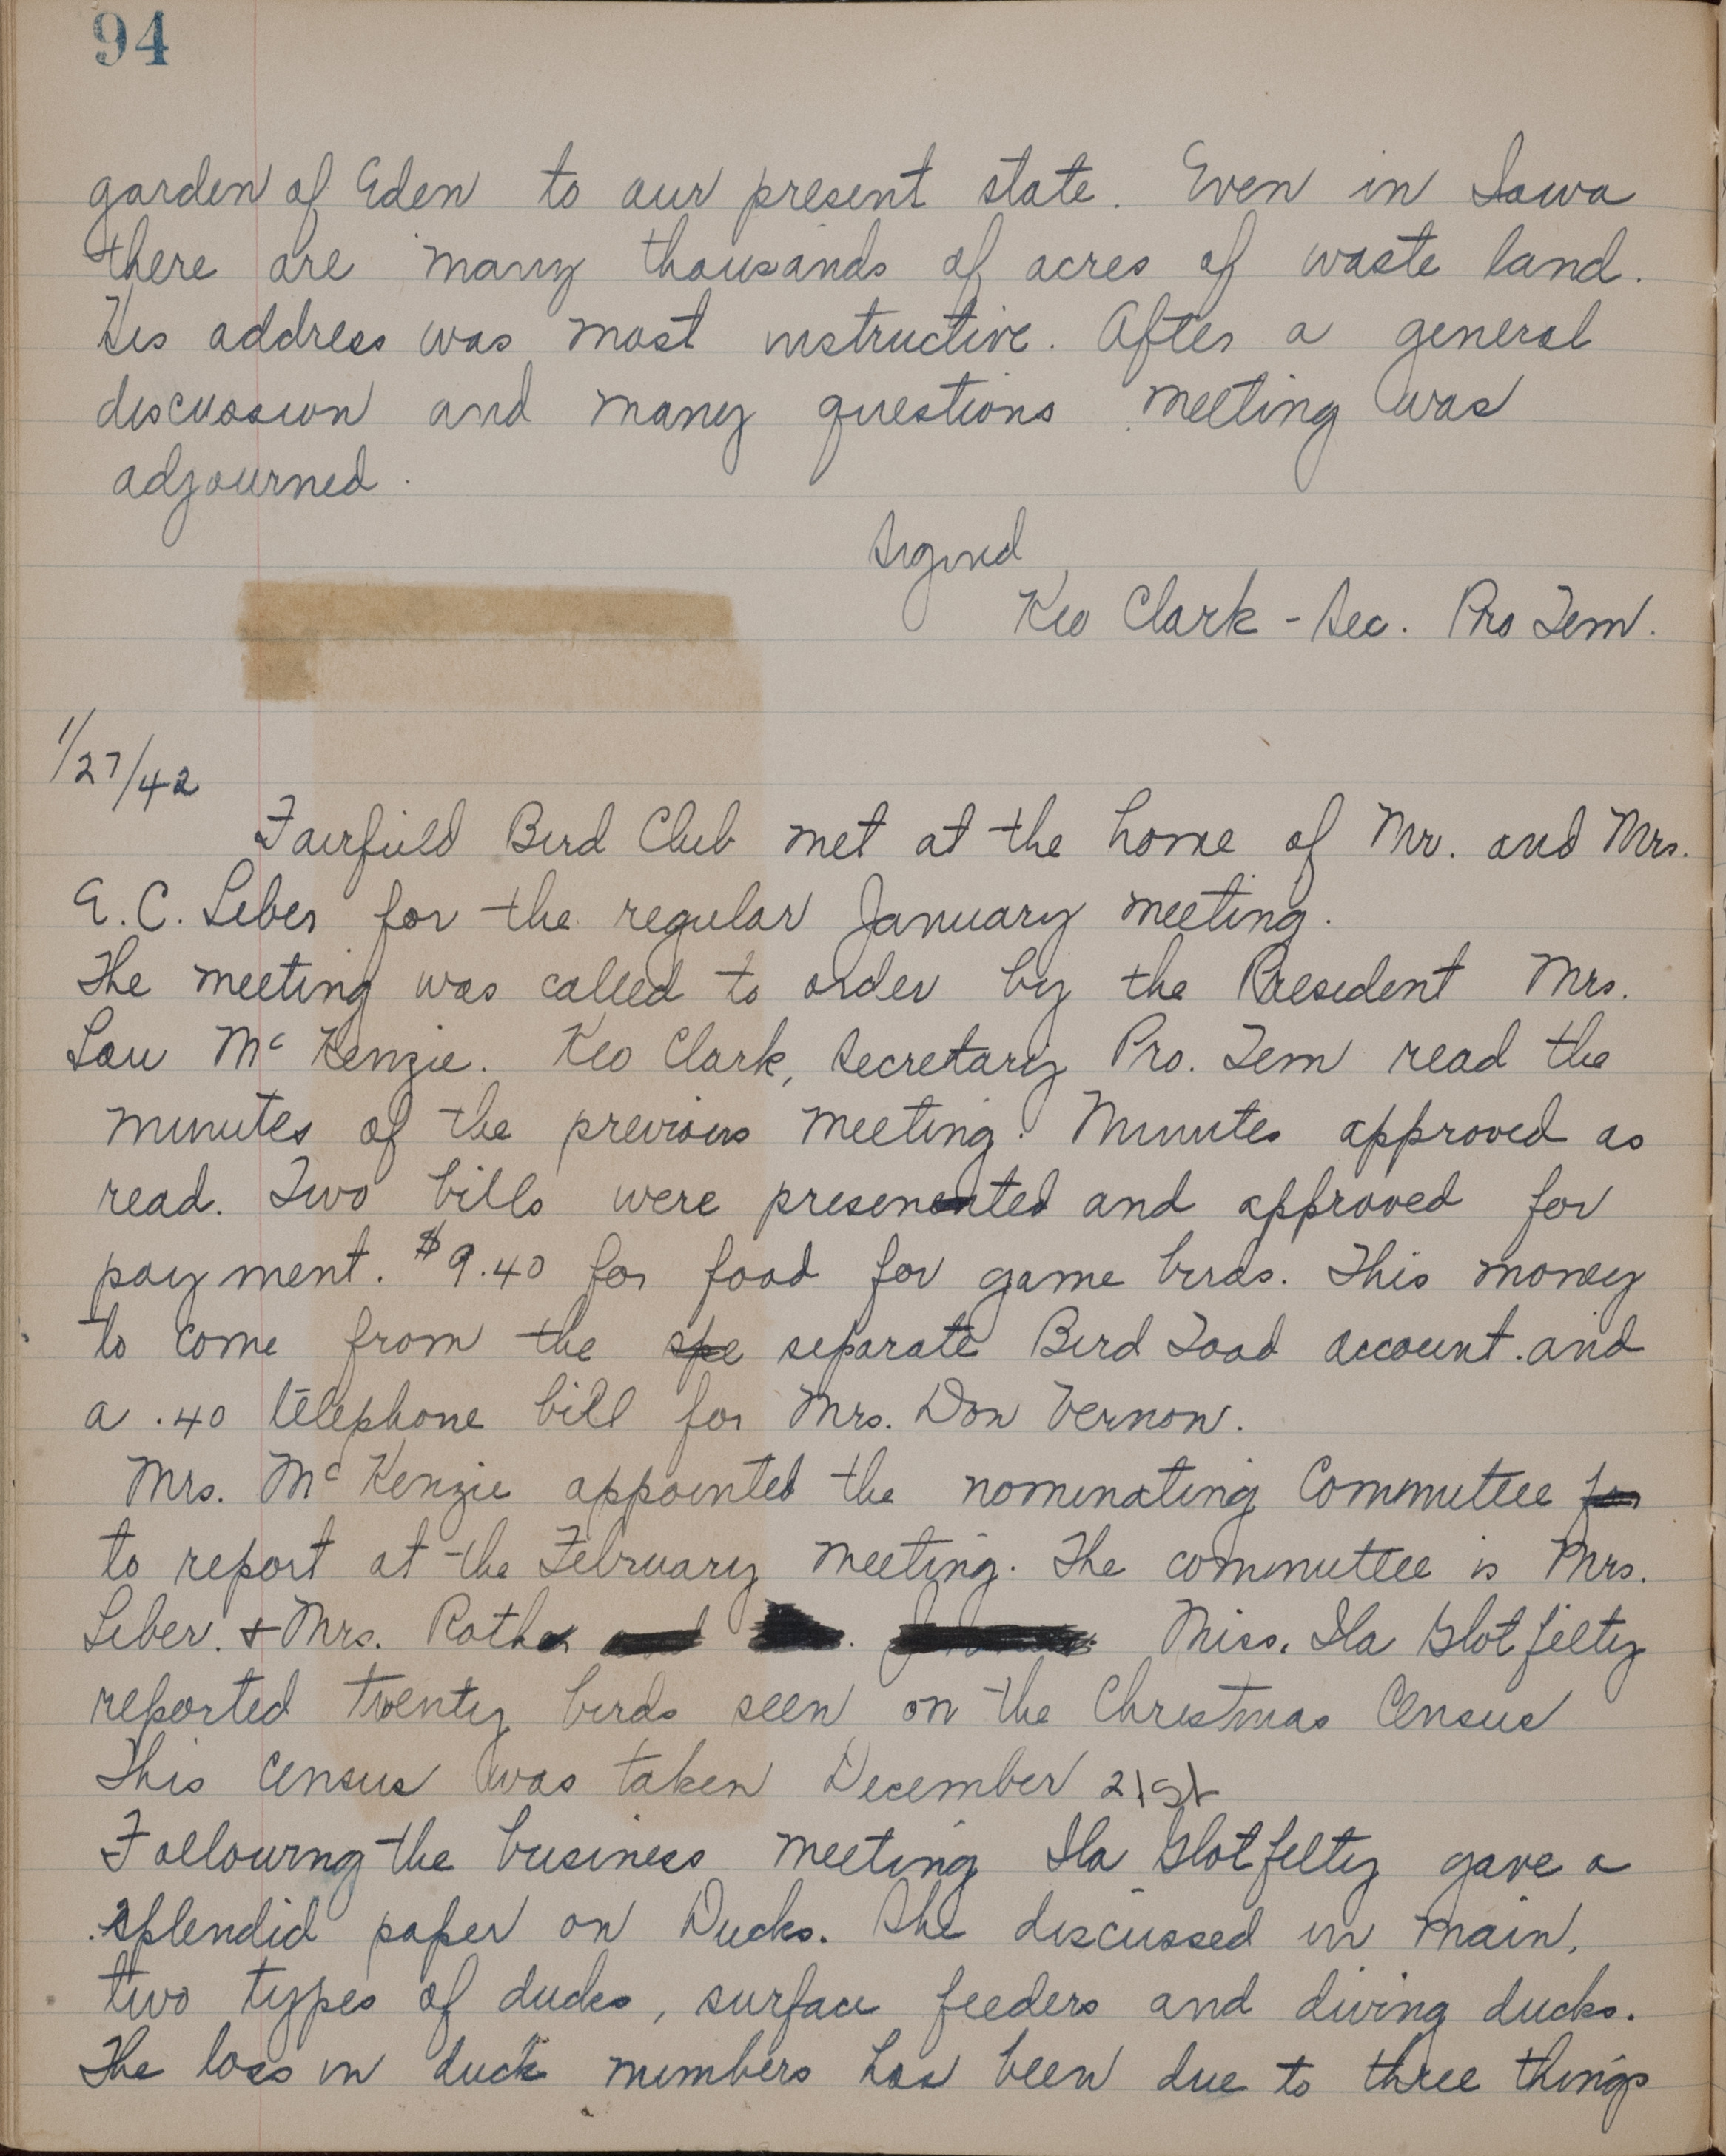 94
garden of Eden to our present state. Even in Iowa
there are many thousands of acres of waste land.
His address was most instructive. After a general
discussion and many questions meeting was
adjourned.
Signed
Keo Clark - Sec. Pro Tem.
1/27/42
Fairfield Bird Club met at the home of Mr. and Mrs.
E. C. Leber for the regular January meeting.
The meeting was called to order by the President Mrs.
Lou McKenzie. Keo Clark, Secretary Pro. Tem read the
minutes of the previous meeting. Minutes approved as
read. Two bills were presented and approved for
payment. $9.40 for food for game birds. This money
to come from the spe separate Bird Food account. and
a .40 telephone bill for Mrs. Don Vernon.
Mrs. McKenzie appointed the nominating Committee for
to report at the February meeting. The committee is Mrs.
Leber. + Mrs. Roth and Miss. Ila Glotfelty
reported twenty birds seen on the Christmas Census
This census was taken December 21st
Following the business meeting Ila Glotfelty gave a
splendid paper on Ducks. She discussed in main,
two types of ducks, surface feeders and diving ducks.
The loss in duck numbers has been due to three things